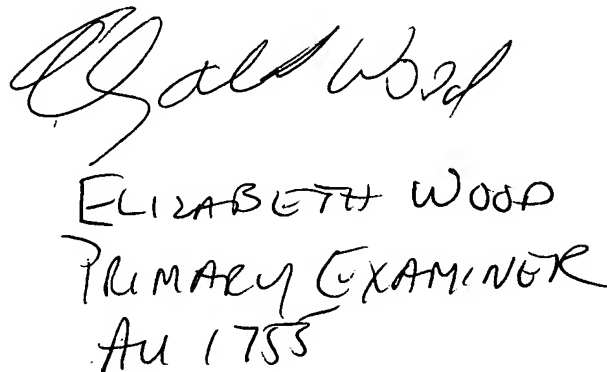 Elizabeth Wood
ELIZABETH WOOD
PRIMARY EXAMINER
AU 1755